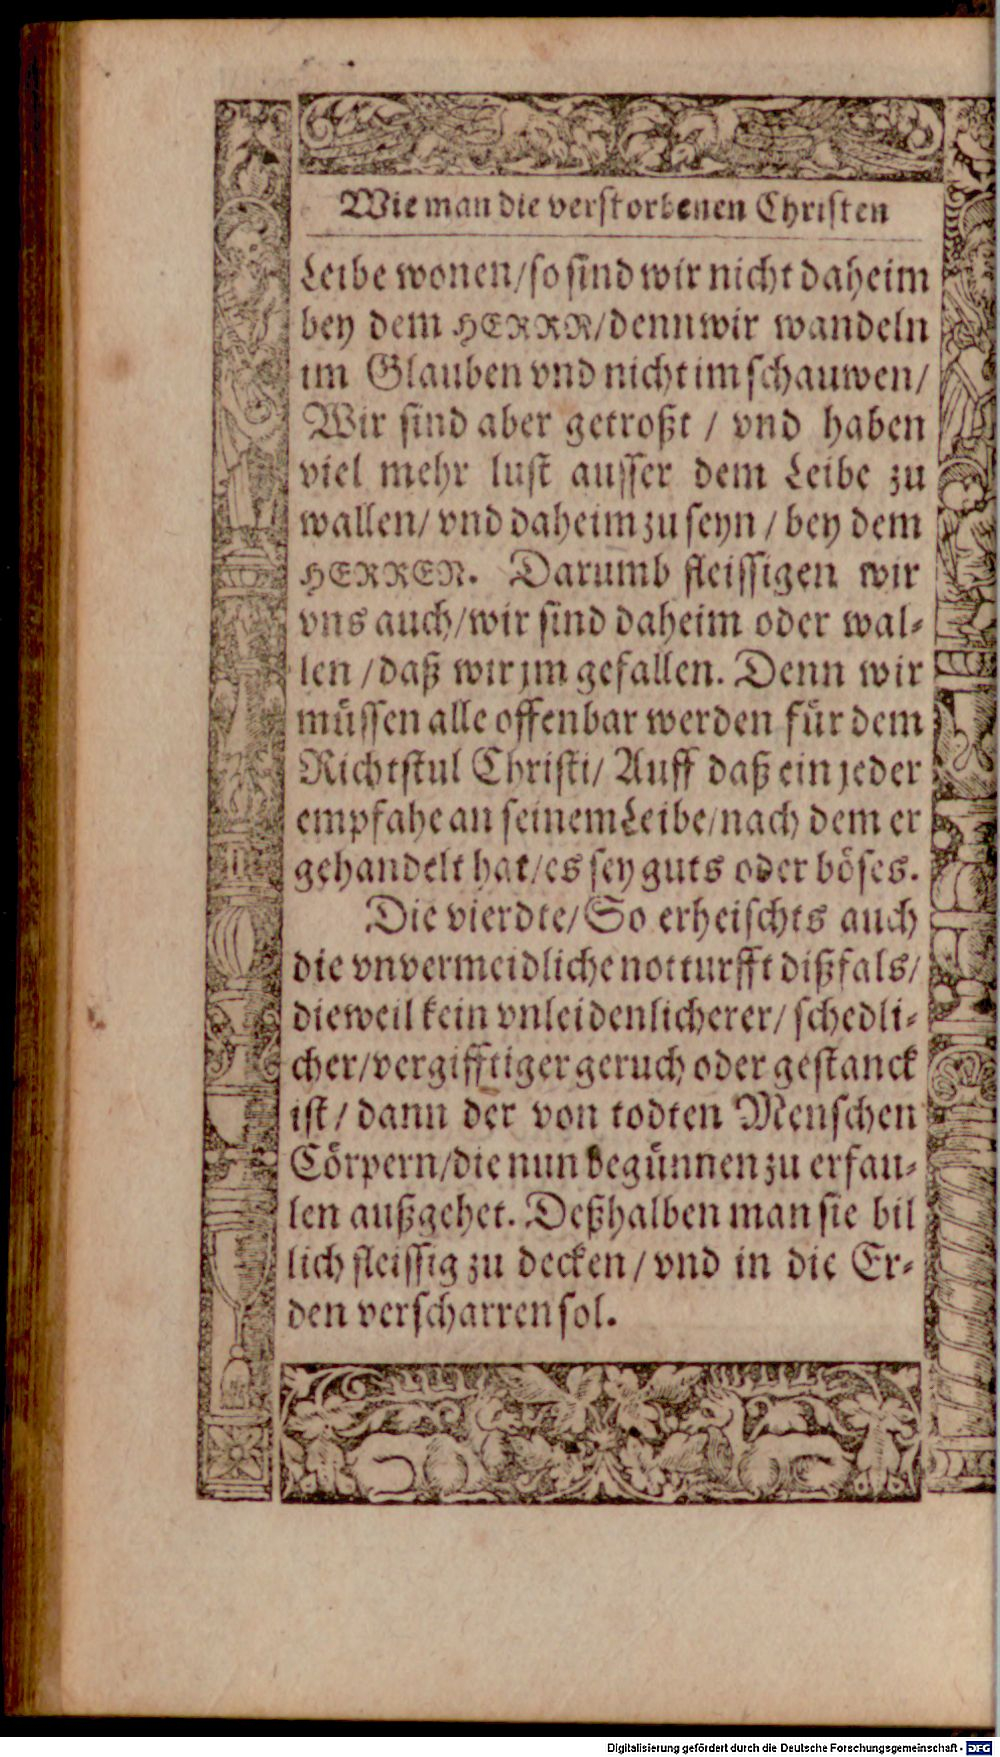 Wie man die verstorbenen Christen
Leibe wonen/so sind wir nicht daheim
bey dem HERRN/denn wir wandeln
im Glauben vnd nicht im schauwen/
Wir sind aber getroßt / vnd haben
viel mehr lust ausser dem Leibe zu
wallen/ vnd daheim zu seyn / bey dem
HERREN. Darumb fleissigen wir
vns auch/wir sind daheim oder wal-
len /daß wir jm gefallen. Denn wir
müssen alle offenbar werden für dem
Richtstul Christi/ Auff daß ein jeder
empfahe an seinem Leibe/nach dem er
gehandelt hat/es sey guts oder böses.
Die vierdte/ So erheischts auch
die vnvermeidliche notturfft dißfals/
dieweil kein vnleidenlicherer/ schedli-
cher/vergifftiger geruch oder gestanck
ist / dann der von todten Menschen
Cörpern/die nun begünnen zu erfau-
len außgehet. Deßhalben man sie bil
lich fleissig zu decken / vnd in die Er-
den verscharren sol.
Digitalisierung gefördert durch die Deutsche Forschungsgemeinschaft - DFG